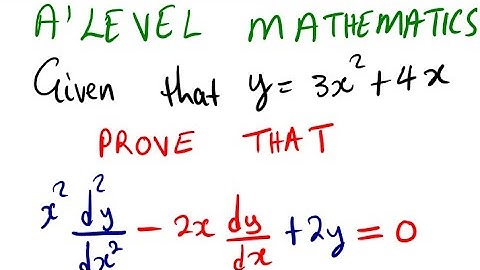 A'LEVEL MATHEMATICS
Given that y = 3x² + 4x
PROVE THAT
x² d²y/dx² - 2x dy/dx + 2y = 0